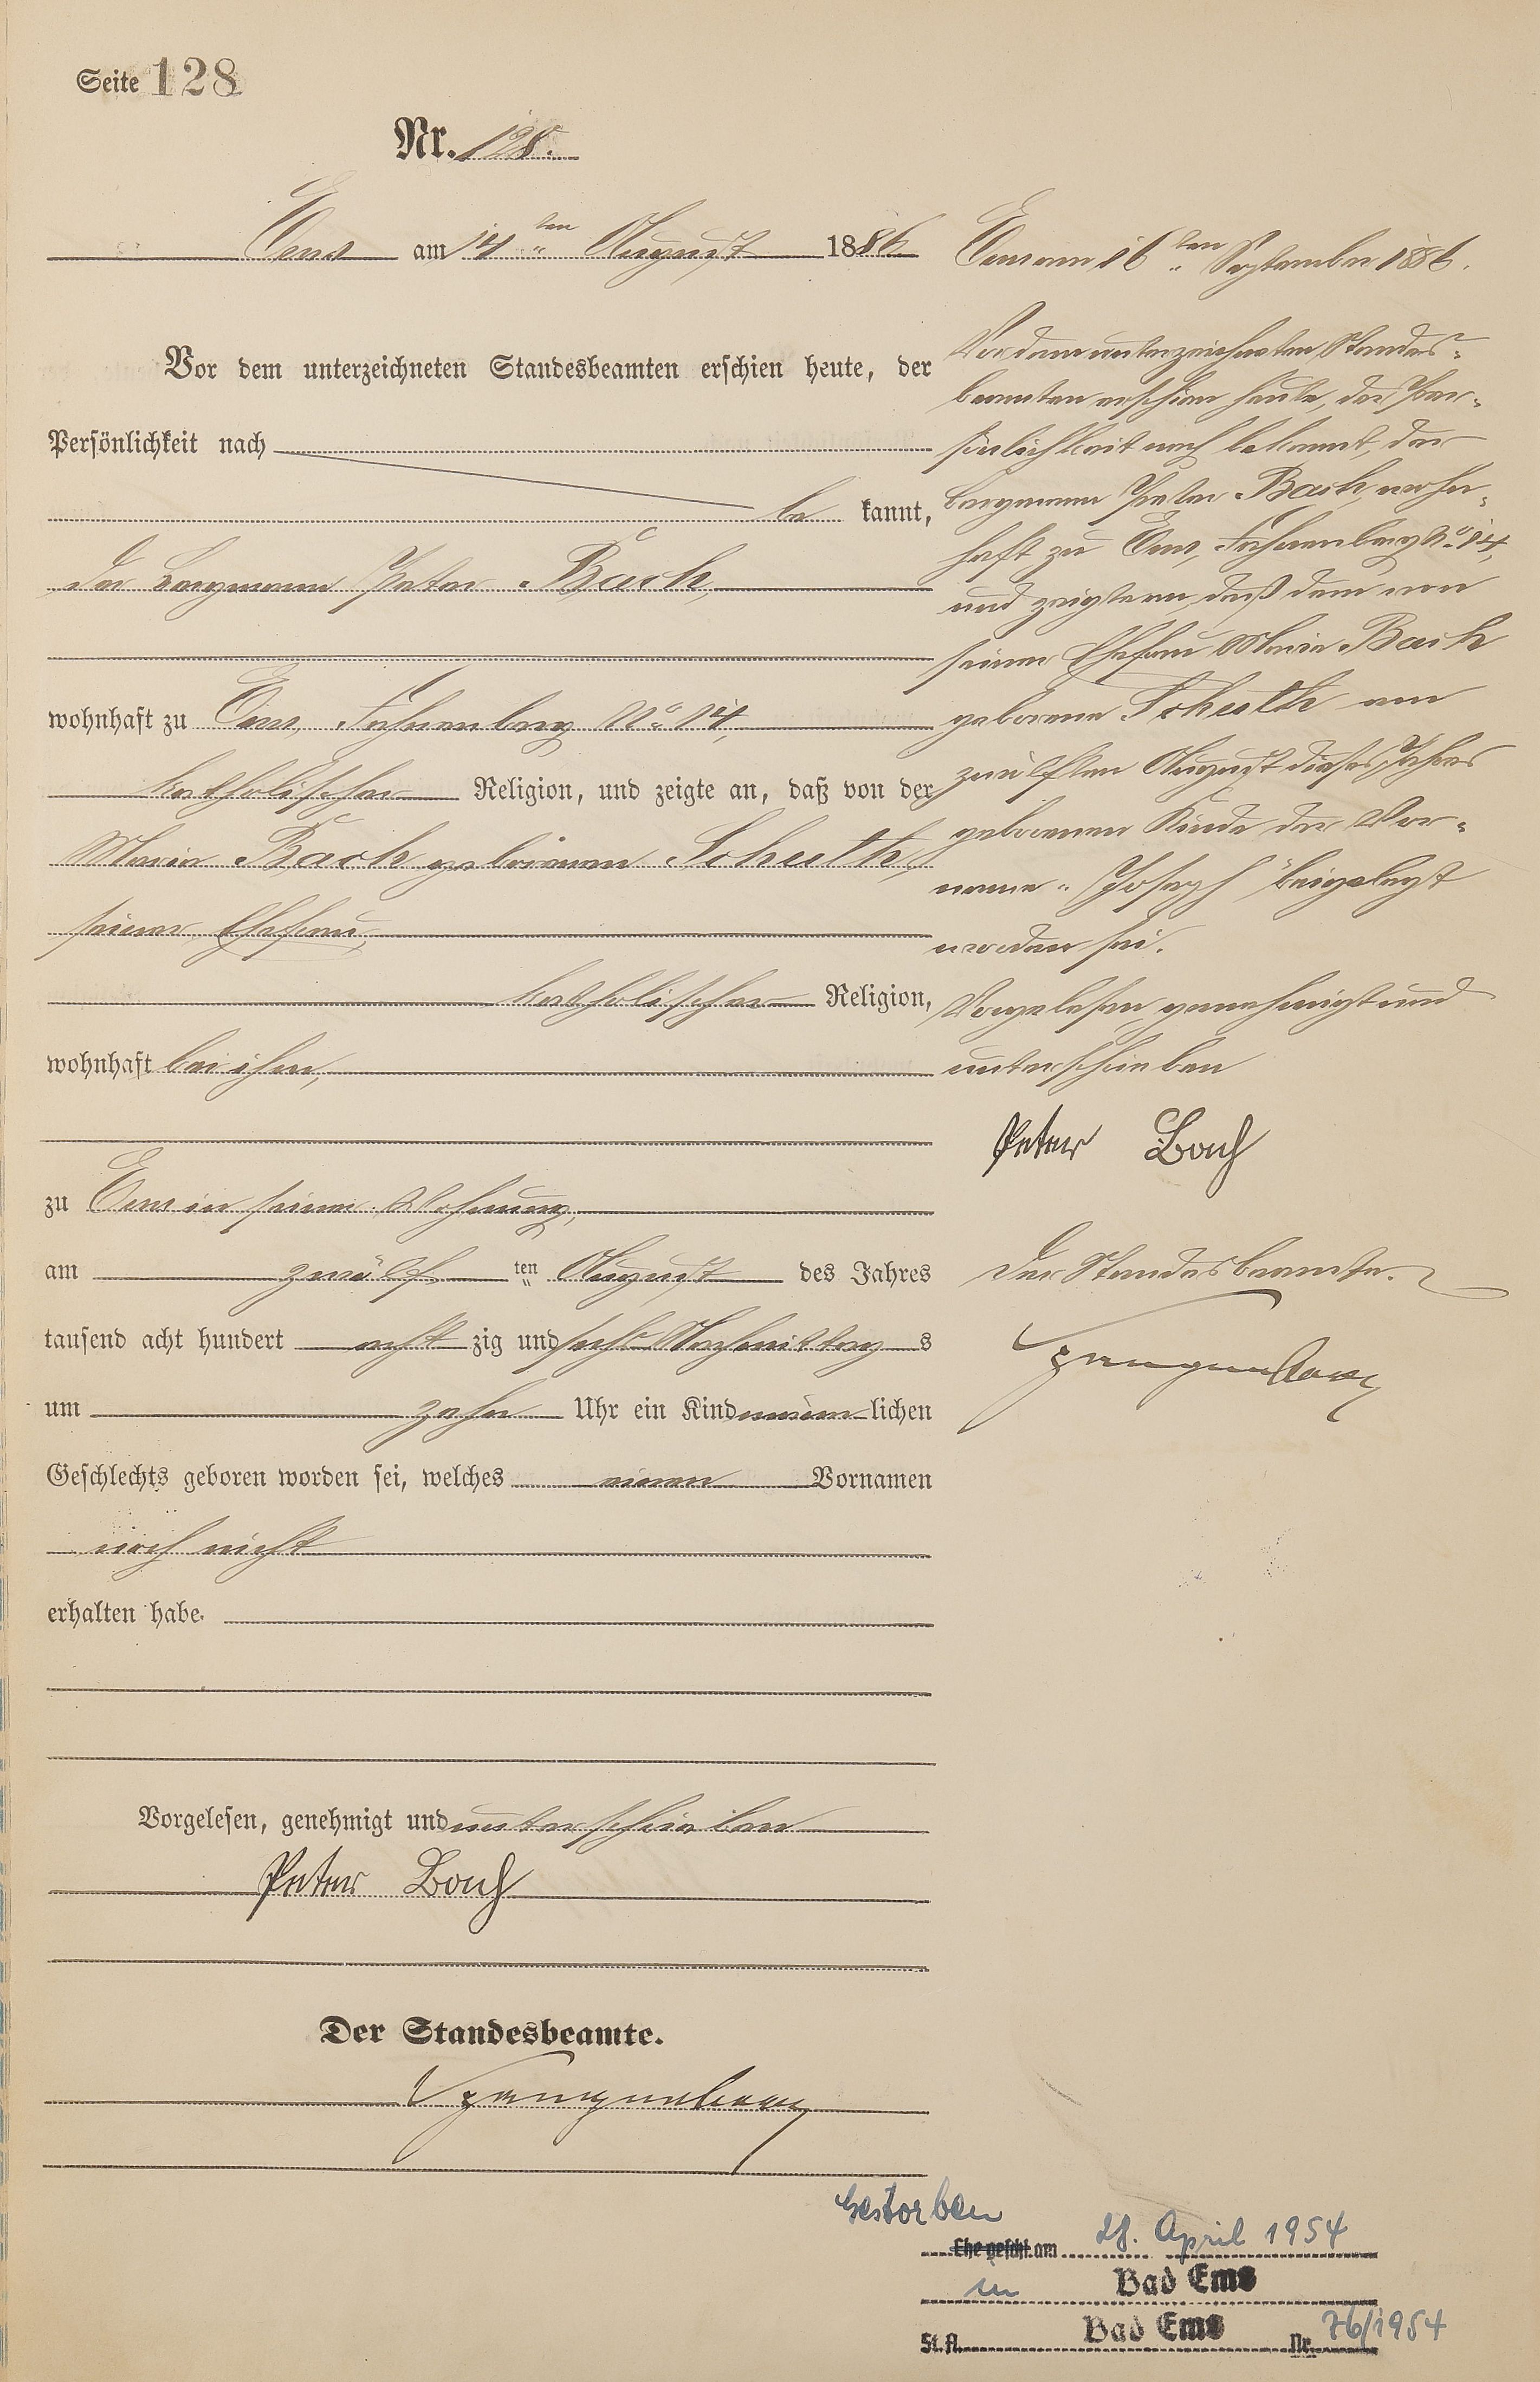 Seite 128
Nr. 128.
Ems am 14ten August 1886
Vor dem unterzeichneten Standesbeamten erschien heute, der
Persönlichkeit nach
be kannt,
der Bergmann Peter Bach,
wohnhaft zu Ems, Fahnenberg No. 14,
katholischer Religion, und zeigte an, daß von der
Maria Bach geborenen Scheuth,
seiner Ehefrau,
katholischer Religion,
wohnhaft bei ihm,
zu Ems in seiner Wohnung,
am zwölf ten August des Jahres
tausend acht hundert acht zig und sechs Nachmittag s
um zehn Uhr ein Kind männ lichen
Geschlechts geboren worden sei, welches einen Vornamen
noch nicht
erhalten habe.
Vorgelesen, genehmigt und unterschrieben
Peter Bach
Der Standesbeamte.
Ems am 16ten September 1886.
Vor dem unterzeichneten Standes-
beamten erschien heute, der Per-
sönlichkeit nach bekannt, der
Bergmann Peter Bach, wohn-
haft zu Ems, Fahnenberg No. 14,
und zeigte an, daß dem von
seiner Ehefrau Maria Bach
geborene Scheuth am
zwölften August dieses Jahres
geborenen Kinde der Vor-
name "Joseph" beigelegt
worden sei.
Vorgelesen, genehmigt und
unterschrieben
Peter Bach
Der Standesbeamte.
Gestorben
Ehe geschl. am 28. April 1954
in Bad Ems
St.A. Bad Ems Nr. 76/1954